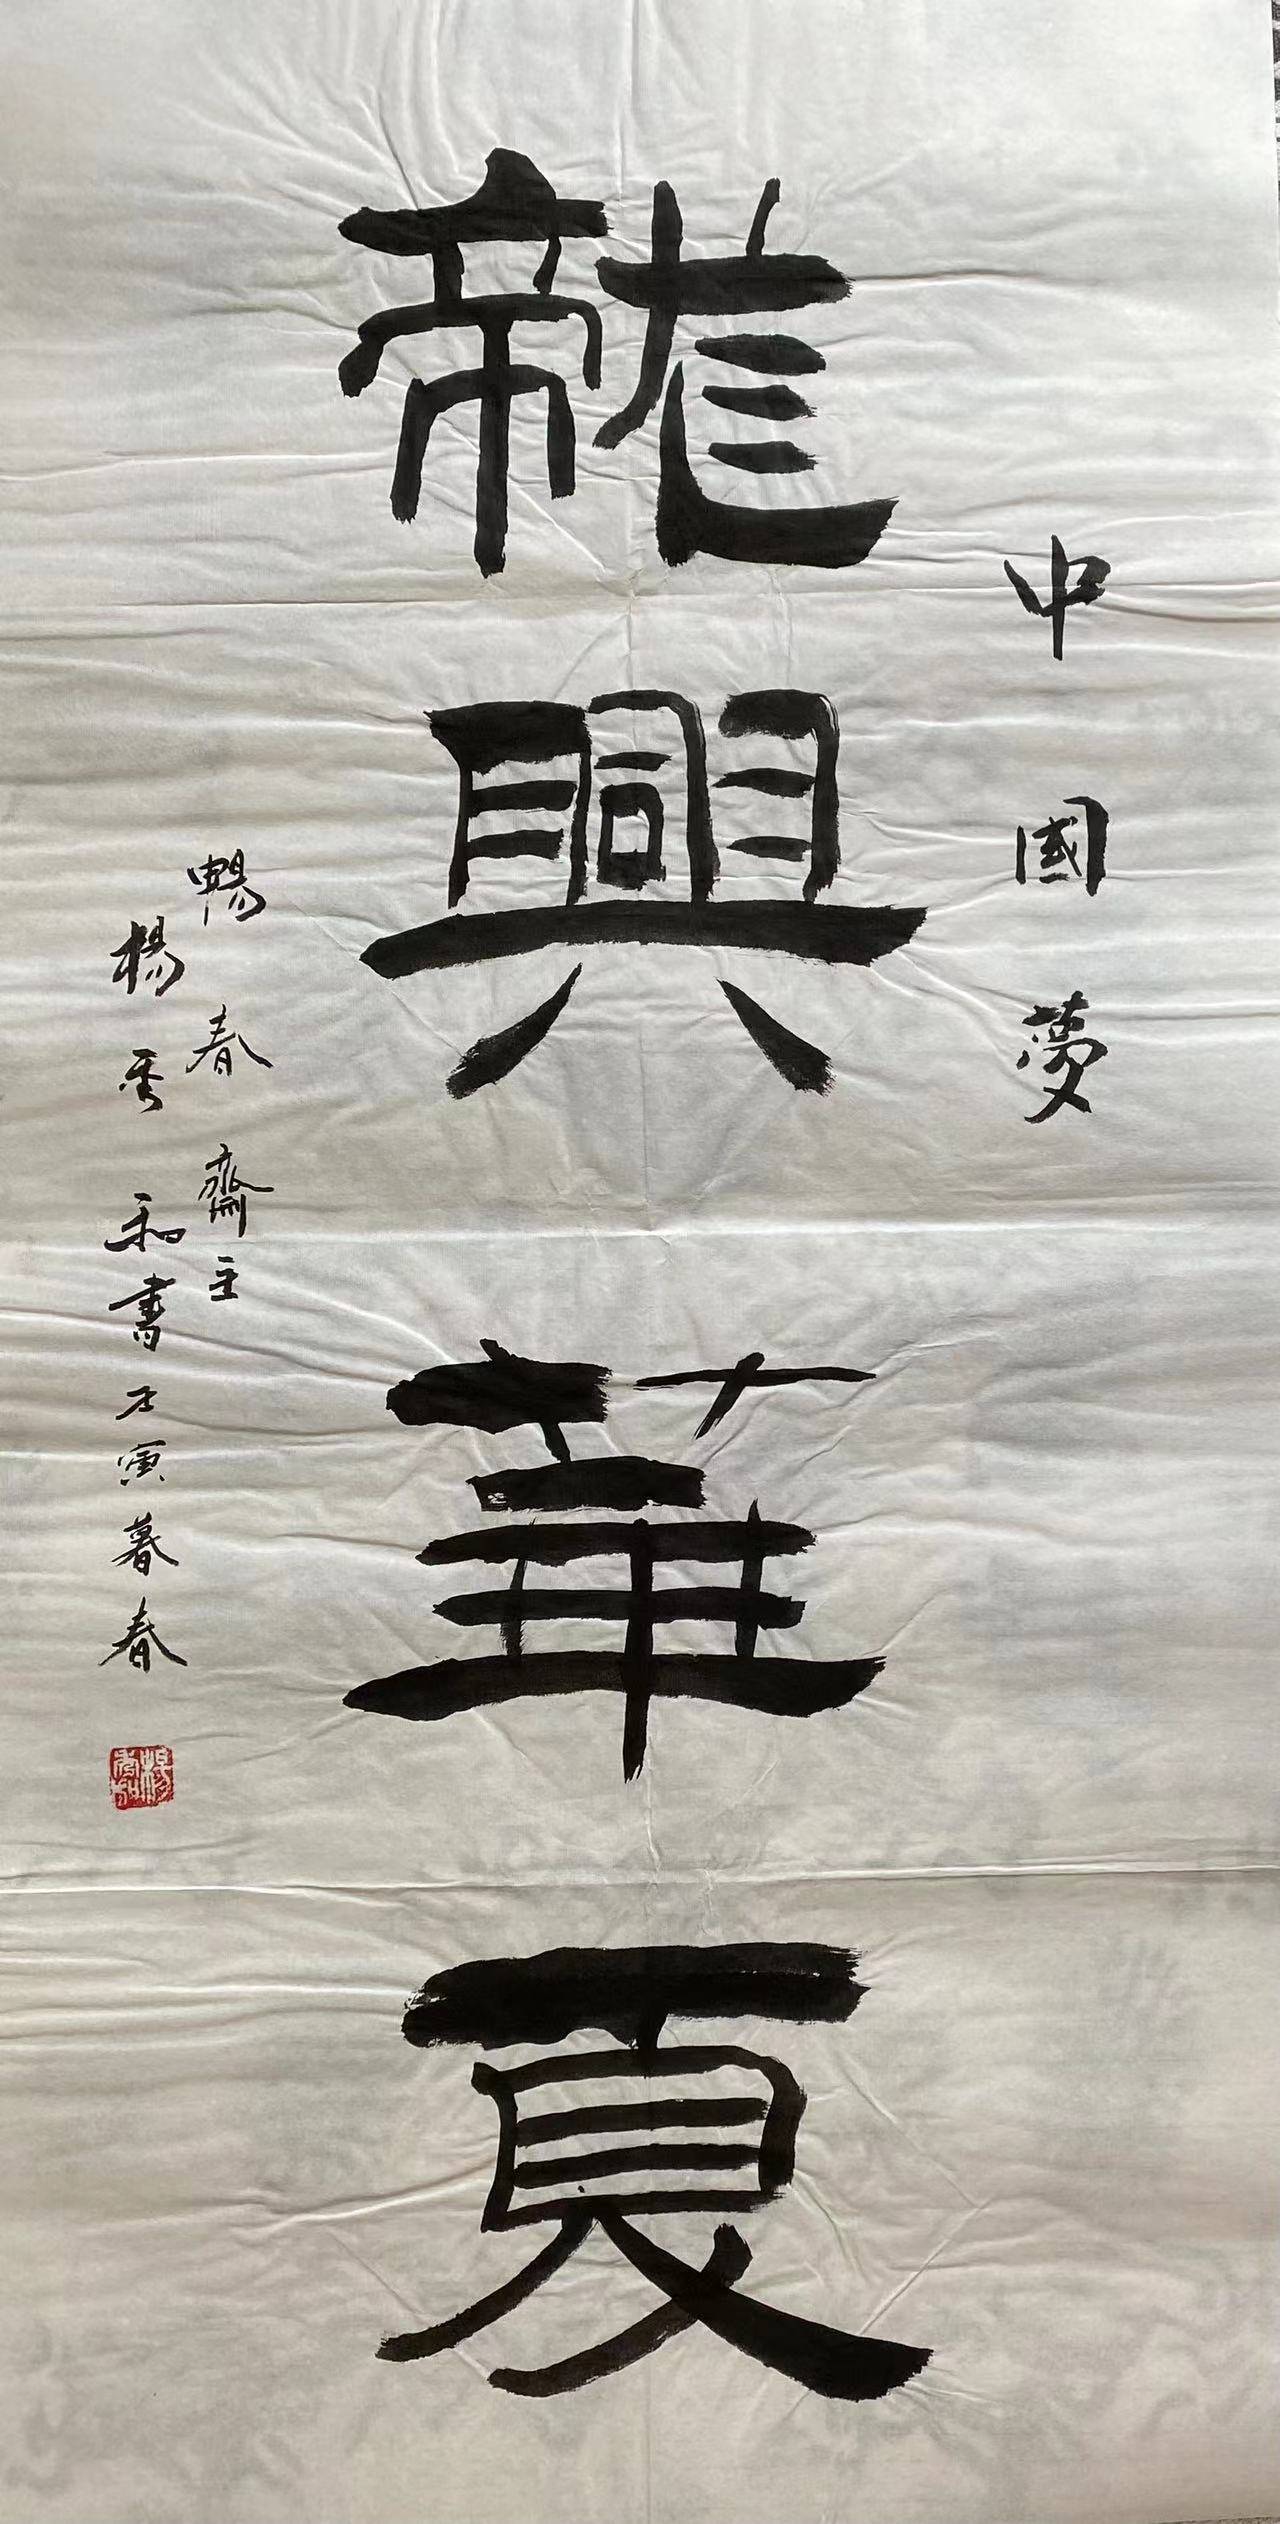 中國夢
龍興華夏
暢春齋主
楊秀和書壬寅暮春
楊秀和